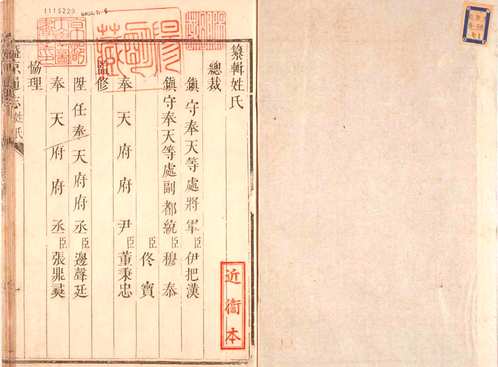 纂輯姓氏
總裁
鎮守奉天等處將軍臣伊把漢
鎮守奉天等處副都統臣穆泰
臣佟寶
奉天府府尹臣董秉忠
監修
陞任奉天府府丞臣邊聲廷
奉天府府丞臣張鼎彝
協理
盛京通志 姓氏
近衞本
1115229